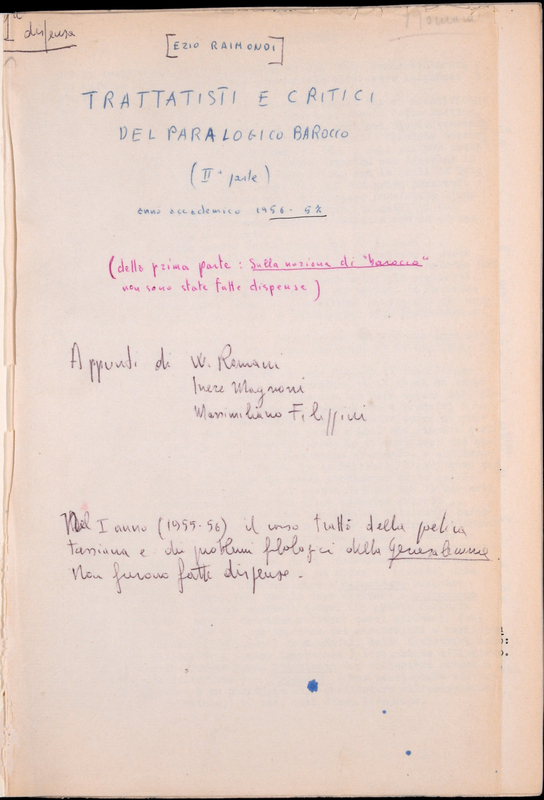 1ª dispensa
Romani
[EZIO RAIMONDI]
TRATTATISTI E CRITICI
DEL PARALOGICO BAROCCO
(IIª parte)
anno accademico 1956-57
(della prima parte: Sulla nozione di "barocco"
non sono state fatte dispense)
Appunti di W. Romani
Inere Magnoni
Massimiliano Filippini
Nel I anno (1955-56) il corso trattò della poetica
tassiana e dei problemi filologici della Gerusalemme
Non furono fatte dispense.